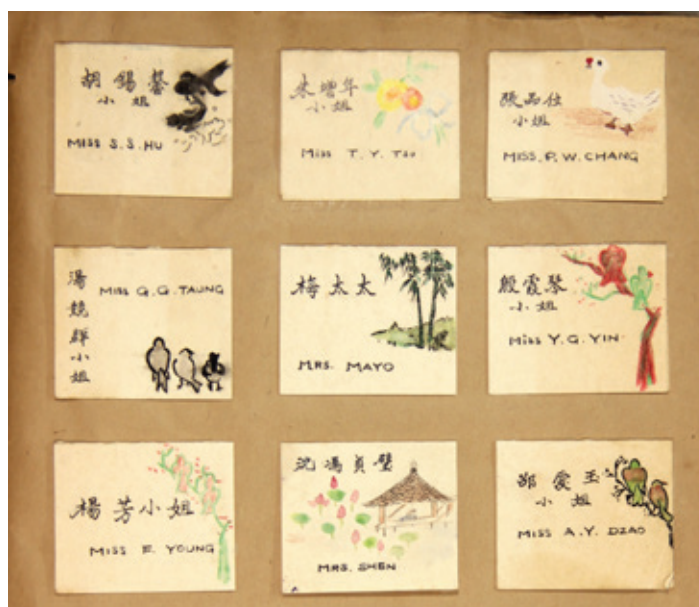 胡錫馨
小姐
MISS S.S.HU
朱增年
小姐
MISS T.Y.TSO
張品位
小姐
MISS.P.W.CHANG
湯兢輝小姐
MISS G.G.TAUNG
梅太太
MRS. MAYO
殷霞琴
小姐
MISS Y.G.YIN
楊芳小姐
MISS F. YOUNG
沈馮貞璧
MRS. SHEN
愛玉
小姐
MISS A.Y. DZAO